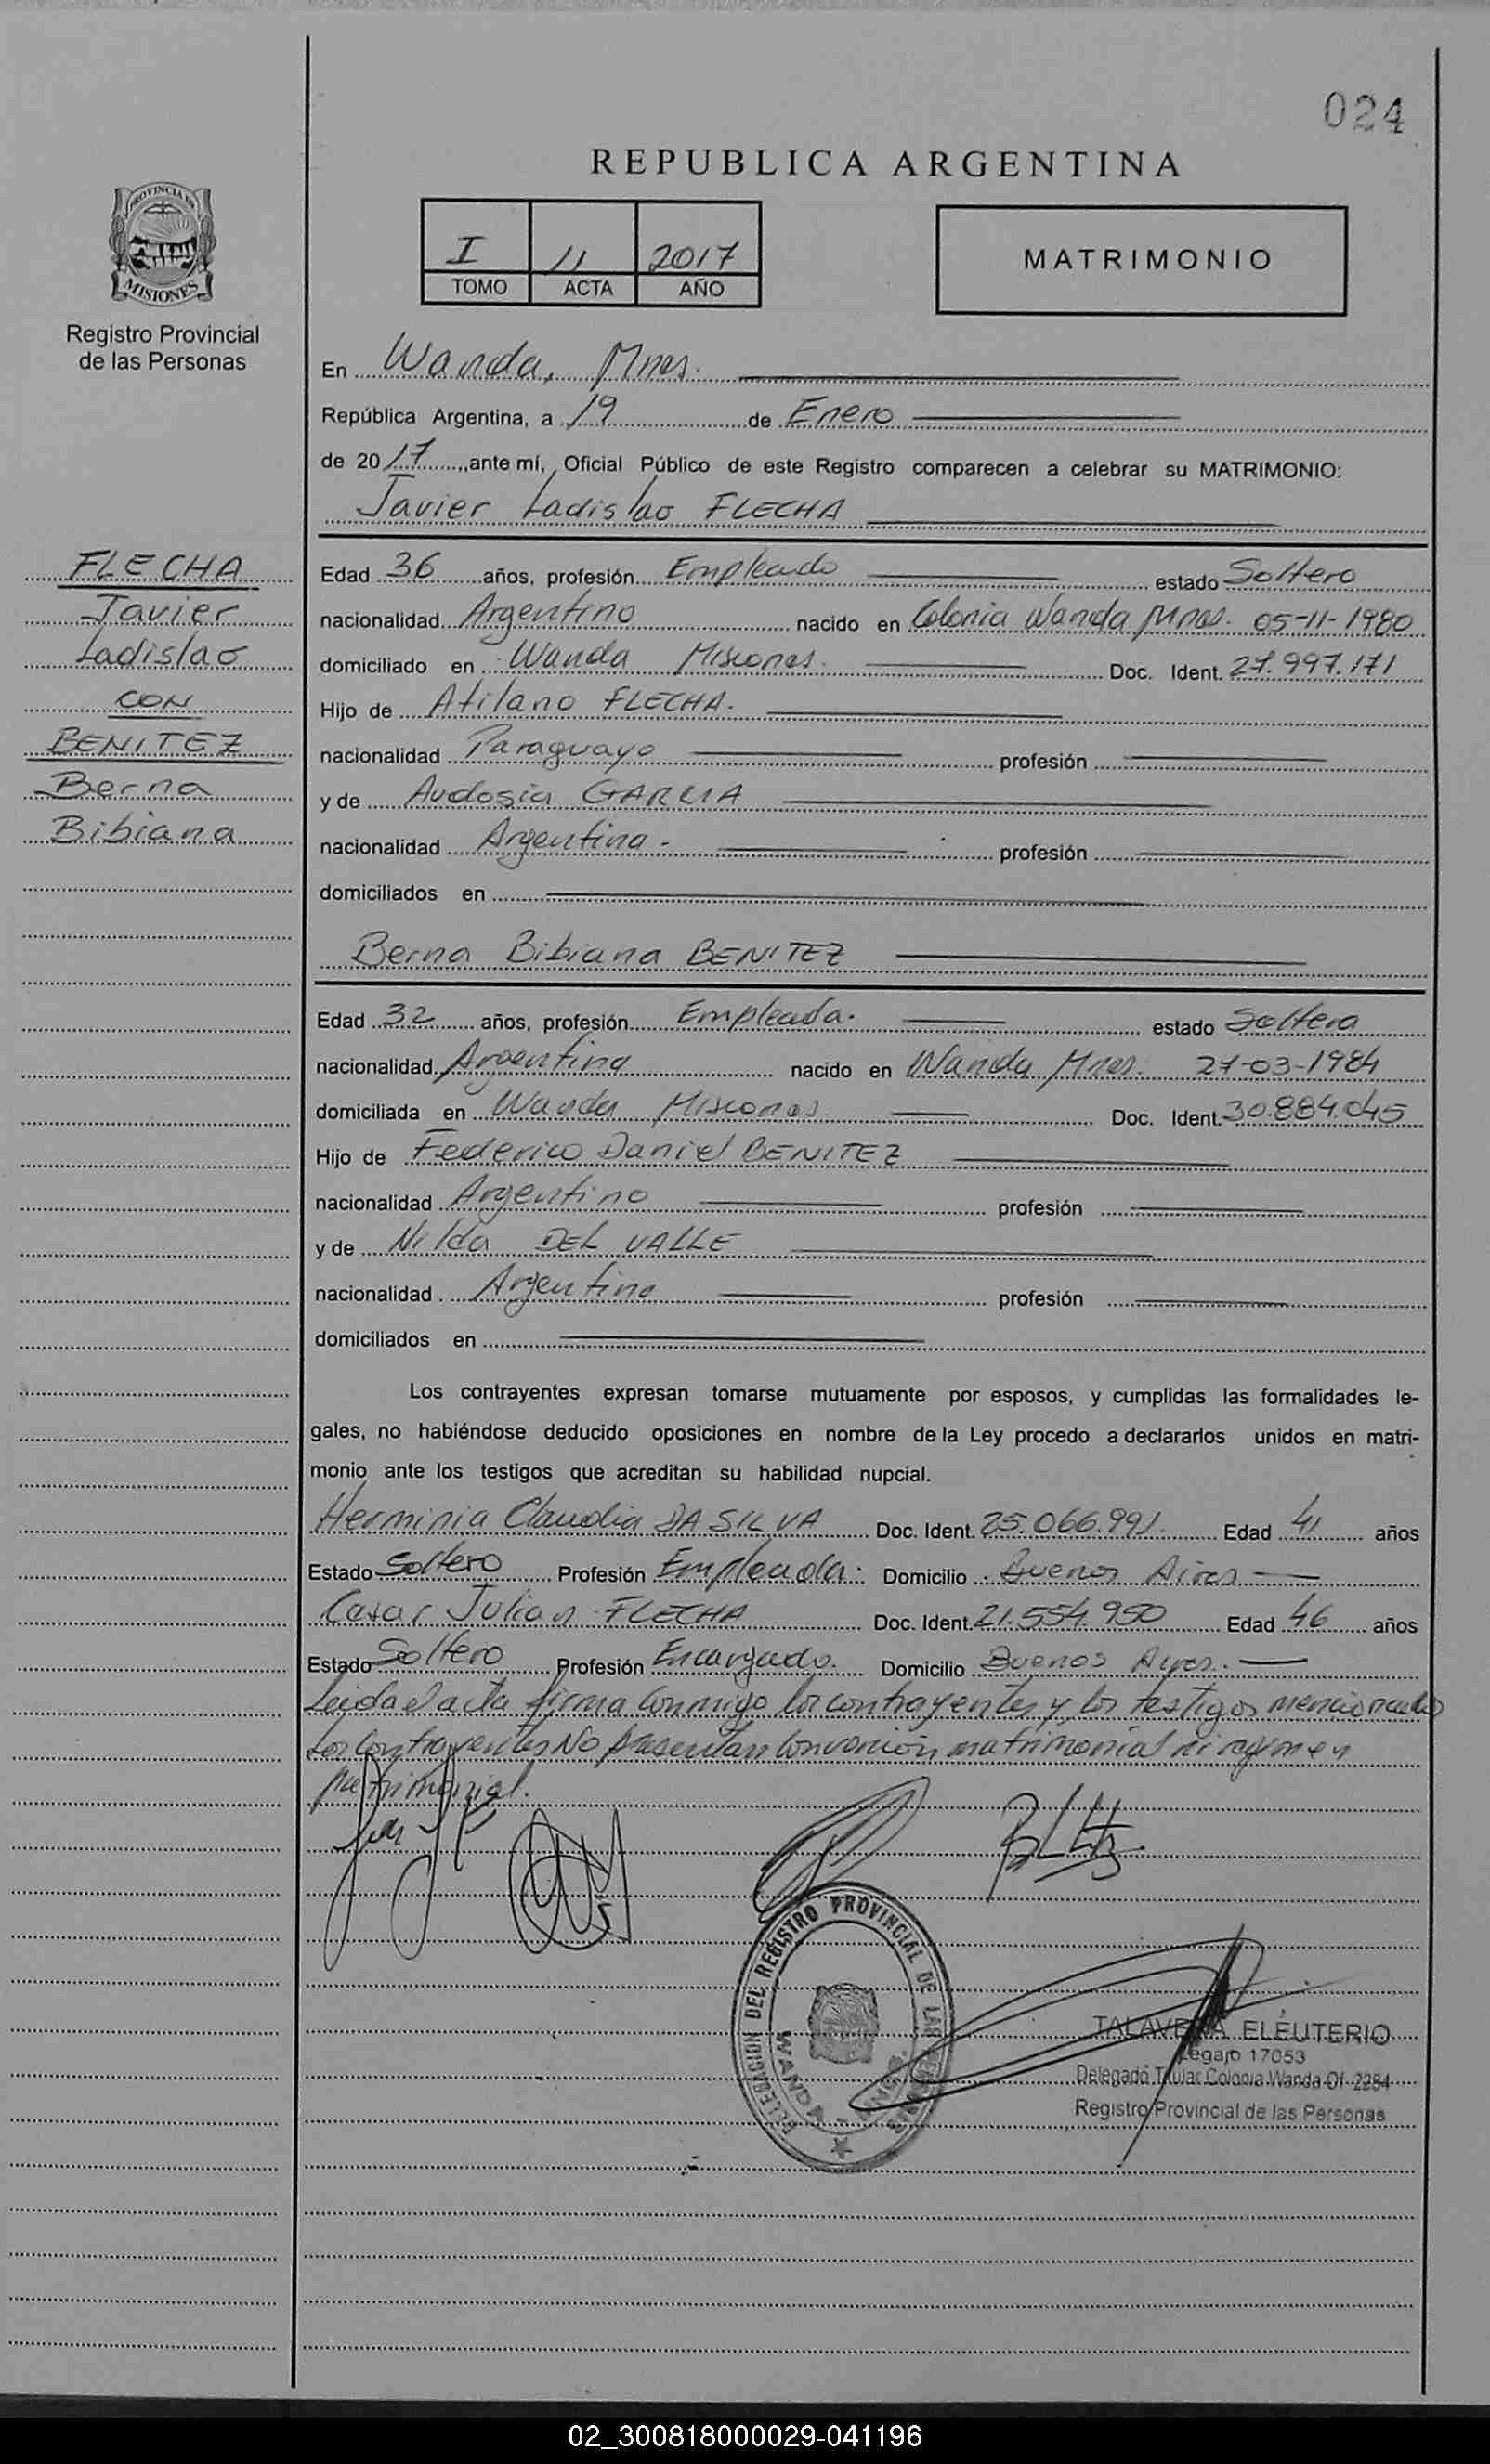 024
REPUBLICA ARGENTINA
PROVINCIA DE
MISIONES
Registro Provincial
de las Personas
I 11 2017
TOMO ACTA AÑO
MATRIMONIO
En Wanda, Mnes.
República Argentina, a 19 de Enero
de 2017, ante mí, Oficial Público de este Registro comparecen a celebrar su MATRIMONIO:
Javier Ladislao FLECHA
FLECHA
Javier
Ladislao
CON
BENITEZ
Berna
Bibiana
Edad 36 años, profesión Empleado estado Soltero
nacionalidad Argentino nacido en Colonia Wanda Mnes. 05-11-1980
domiciliado en Wanda Misiones. Doc. Ident. 27.997.171
Hijo de Atilano FLECHA.
nacionalidad Paraguayo profesión
y de Audosia GARCIA
nacionalidad Argentina - profesión
domiciliados en
Berna Bibiana BENITEZ
Edad 32 años, profesión Empleada. estado Soltera
nacionalidad Argentina nacido en Wanda Mnes. 27-03-1984
domiciliada en Wanda Misiones Doc. Ident. 30.884.045
Hijo de Federico Daniel BENITEZ
nacionalidad Argentino profesión
y de Nilda DEL VALLE
nacionalidad Argentina profesión
domiciliados en
Los contrayentes expresan tomarse mutuamente por esposos, y cumplidas las formalidades le-
gales, no habiéndose deducido oposiciones en nombre de la Ley procedo a declararlos unidos en matri-
monio ante los testigos que acreditan su habilidad nupcial.
Herminia Claudia DA SILVA Doc. Ident. 25.066.991. Edad 41 años
Estado Soltero Profesión Empleada. Domicilio Buenos Aires
Cesar Julian FLECHA Doc. Ident. 21.554.950 Edad 46 años
Estado Soltero Profesión Encargado. Domicilio Buenos Ayres.
Leida el acta firma conmigo los contrayentes y los testigos mencionados
Los Contrayentes No presentan convención matrimonial ni regimen
patrimonial.
DELEGACION DEL REGISTRO PROVINCIAL DE LAS PERSONAS
WANDA - MNES.
TALAVERA ELEUTERIO
Legajo 17053
Delegado Titular Colonia Wanda Of. 2284
Registro Provincial de las Personas
02_300818000029-041196